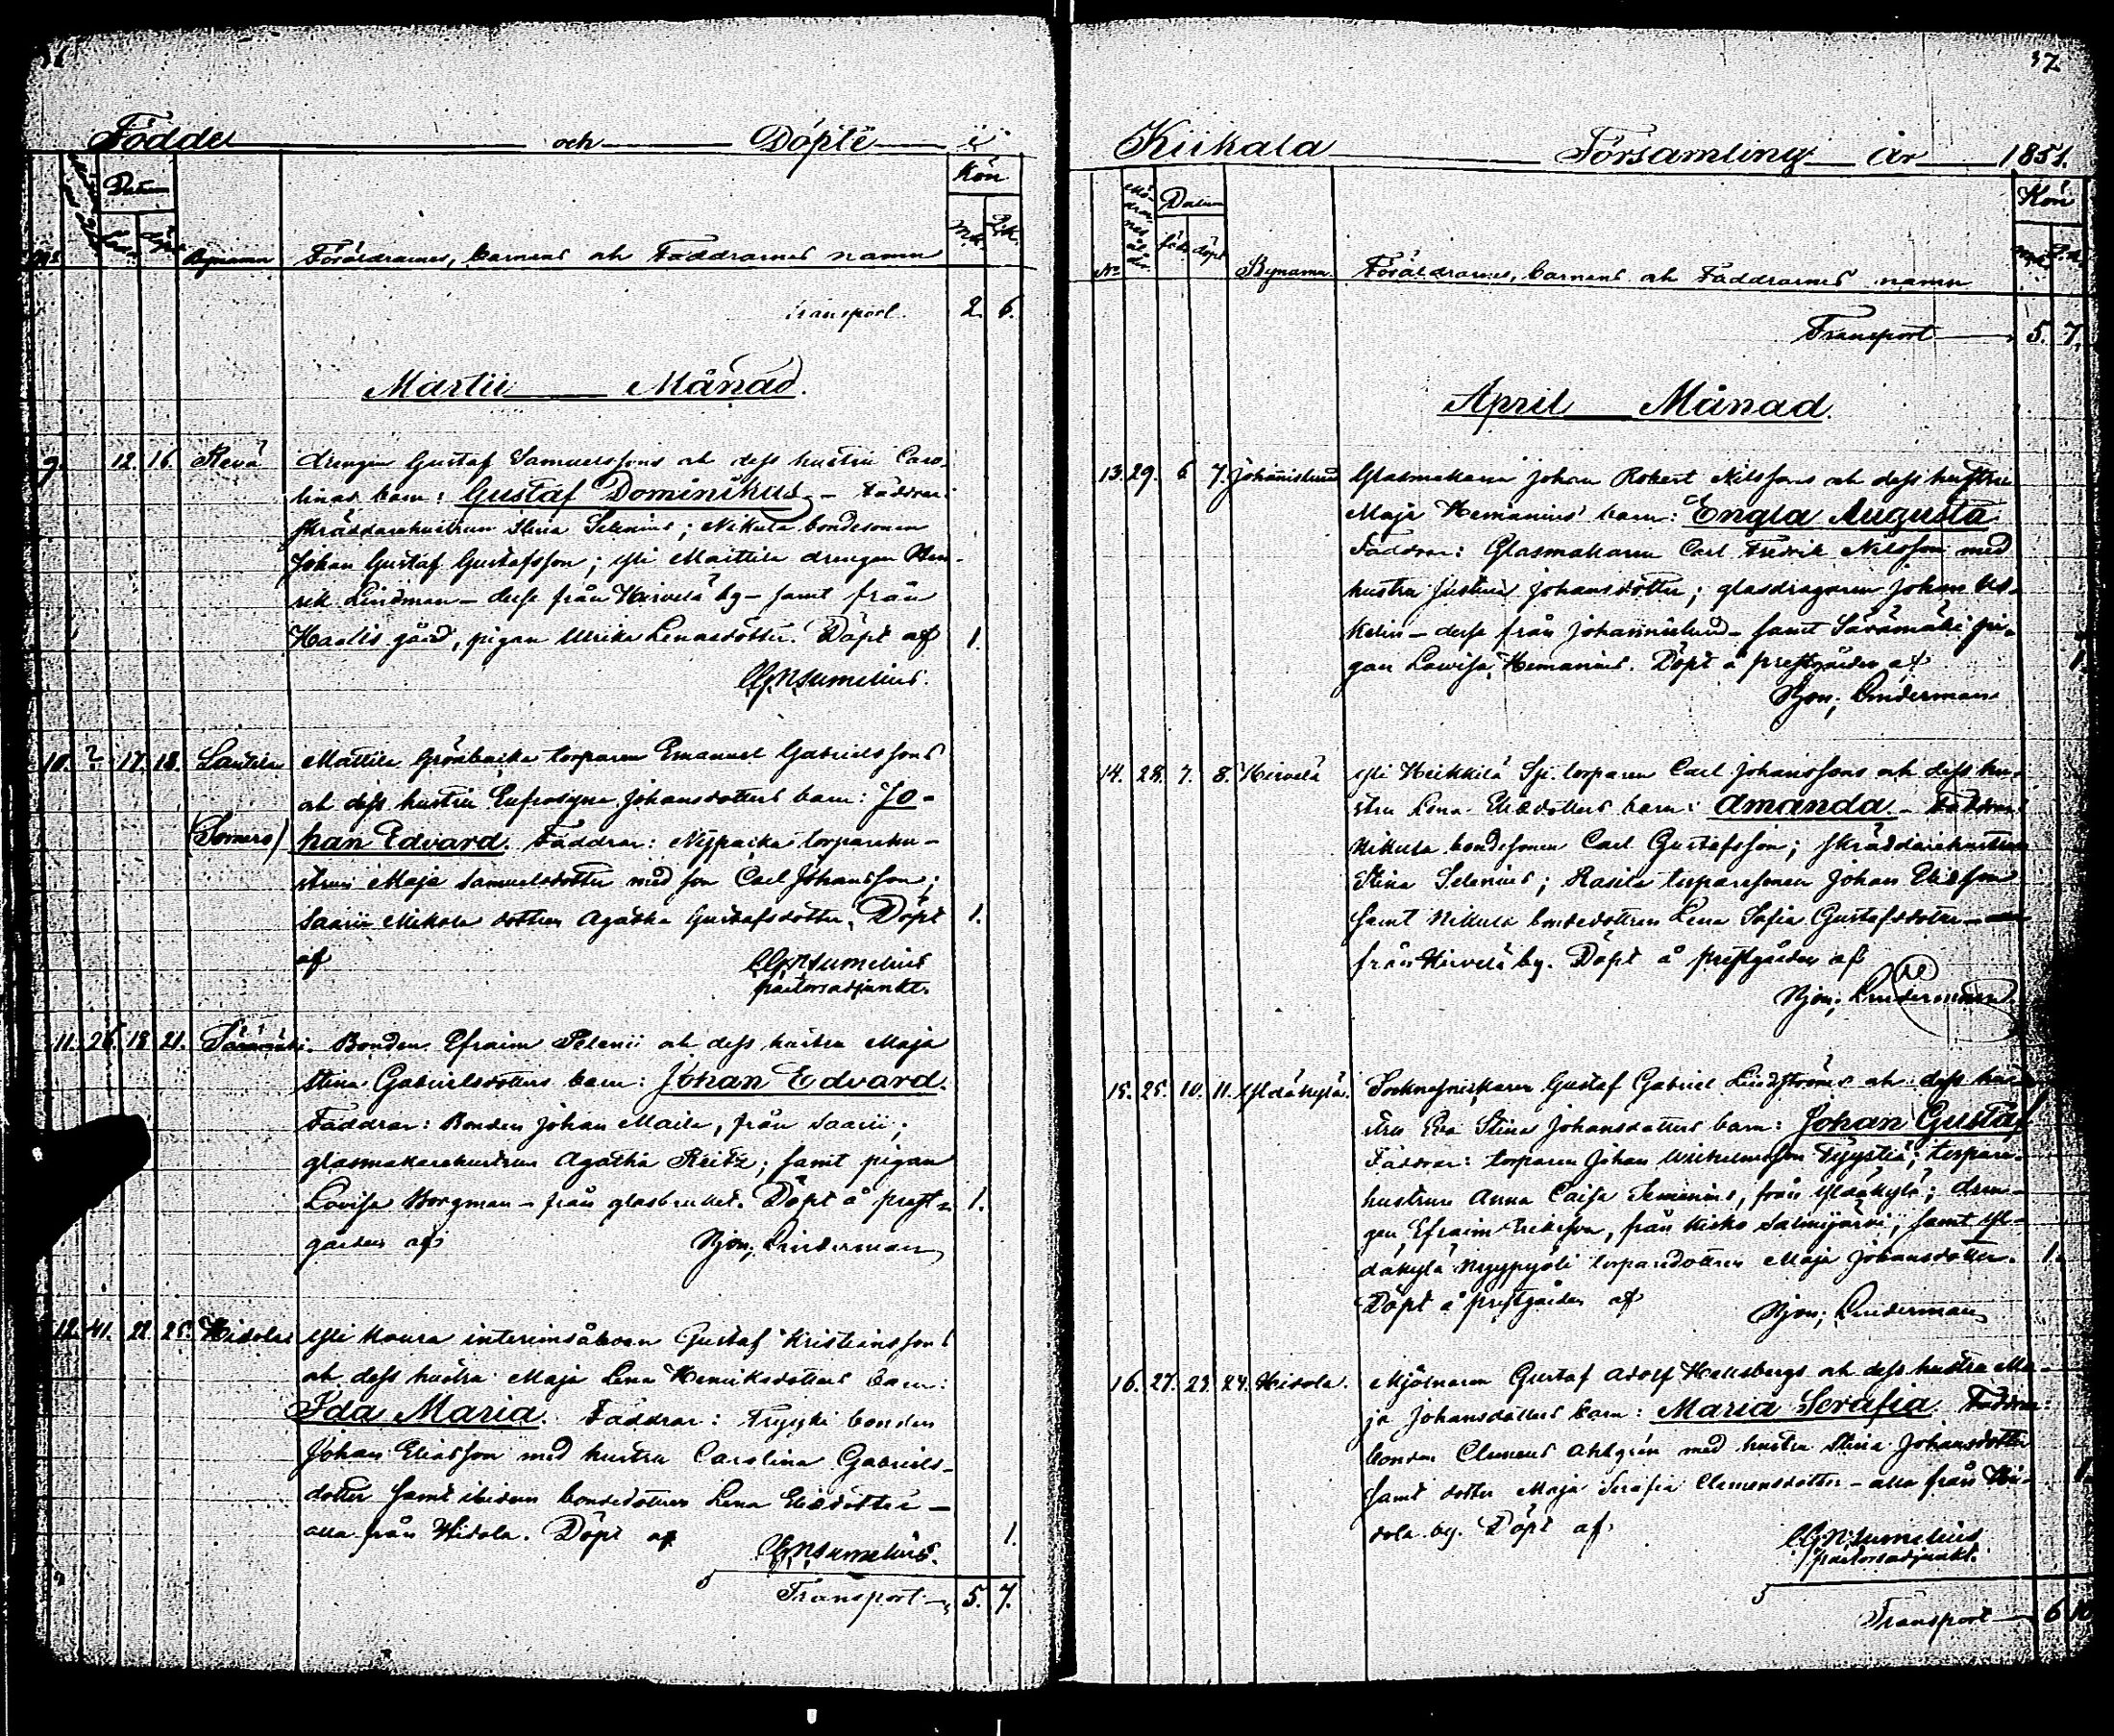 Födde och Döpte i
Kön
Datum
Bynamn Föräldrarnes, barnens och Faddrarnes namn
Transport. 2. 6.
Martii Månad.
9. 12. 16. drengen Gustaf Samuelssons och dess hustru Caro-
linas barn: Gustaf Dominikus – Faddrar:
skräddarehustrun Stina Selenius; Nikula bondesonen
Johan Gustaf Gustafsson; Yli Maittila drengen Hen-
rik Lindman – desse från Hirvelä by – samt från
Haalis gård, pigan Ulrika Lenasdotter. Döpt af 1.
Sumelius.
10. ? 17. 18. Mattila torparen Emanuel Gabrielssons
och dess hustru Eufrosyne Johansdotters barn: Jo-
(Somero) han Edvard. Faddrar: torparehu-
strun Maja Samuelsdotter med son Carl Johansson;
Saarii Mikola dottren Agatha Gustafsdotter. Döpt 1.
af Sumelius
pastorsadjunkt.
11. 26. 18. 21. Särämäki. Bonden Efraim och dess hustru Maja
Stina Gabrielsdotters barn: Johan Edvard.
Faddrar: Bonden Johan Maila, från Saarii;
glasmakarehustrun Agatha Reitz; samt pigan
Lovisa Borgman – från glasbruket. Döpt å prest- 1.
gården af Linderman
12. 41. 22. 25. Hidola Yli Koura interimsåboen Gustaf Kristianssons
och dess hustru Maja Lena Henriksdotters barn:
Ida Maria. Faddrar: bonden
Johan Eliasson med hustru Carolina Gabriels-
dotter samt ibidem bondedottren Lena Eliedotter –
alla från Hidola. Döpt af 1.
Sumelius.
Transport 5. 7.
37
Kiikala Församling år 1851.
Mö-
drar-
nes
ål-
der.
Datum
född döpt
Kön
No Bynamn. Föräldrarnes, barnens och Faddrarnes namn
Transport 5. 7.
April Månad.
13. 29. 6 7. Johannislund Glasmakaren Johan Robert Nilssons och dess hustru
Maja Hemanius' barn: Engla Augusta
Faddrar: Glasmakaren Carl Fredrik Nilsson med
hustru Justina Johansdotter; glasdragaren Johan
– desse från Johannislund – samt Särämäki pi-
gan Lovisa Hemanius. Döpt å prestgården af 1.
Linderman
14. 28. 7. 8. Hirvelä Yli Heikkilä torparen Carl Johanssons och dess hu-
stru Lena Eliedotters barn: Amanda – Faddrar:
Nikula bondesonen Carl Gustafsson; skräddarehustrun
Stina Selenius; Rasila torparesonen Johan Eliesson
samt Nikula bondedottren Lena Sofia Gustafsdotter –
från Hirvelä by. Döpt å prestgården af
Linderman
15. 25. 10. 11. Yldäkylä. Gustaf Gabriel Lindströms och dess hu-
stru Eva Stina Johansdotters barn: Johan Gustaf
Faddrar: torparen Johan Wilhelmsson; torpare-
hustrun Anna Caisa, från Yldäkylä; dren-
gen Efraim Eriksson, från Kisko Salmijärvi; samt Yl-
däkylä torparedottren Maja Johansdotter. 1.
Döpt å prestgården af
Linderman
16. 27. 23. 24. Hidola. Mjölnaren Gustaf Adolf Hellsbergs och dess hustru Ma-
ja Johansdotters barn: Maria Serafia. Faddrar:
bonden Clemens Ahlgrén med hustru Stina Johansdotter
samt dotter Maja Serafia Clemensdotter – alla från Hi- 1.
dola by. Döpt af
Sumelius
pastorsadjunkt.
Transport 6 10